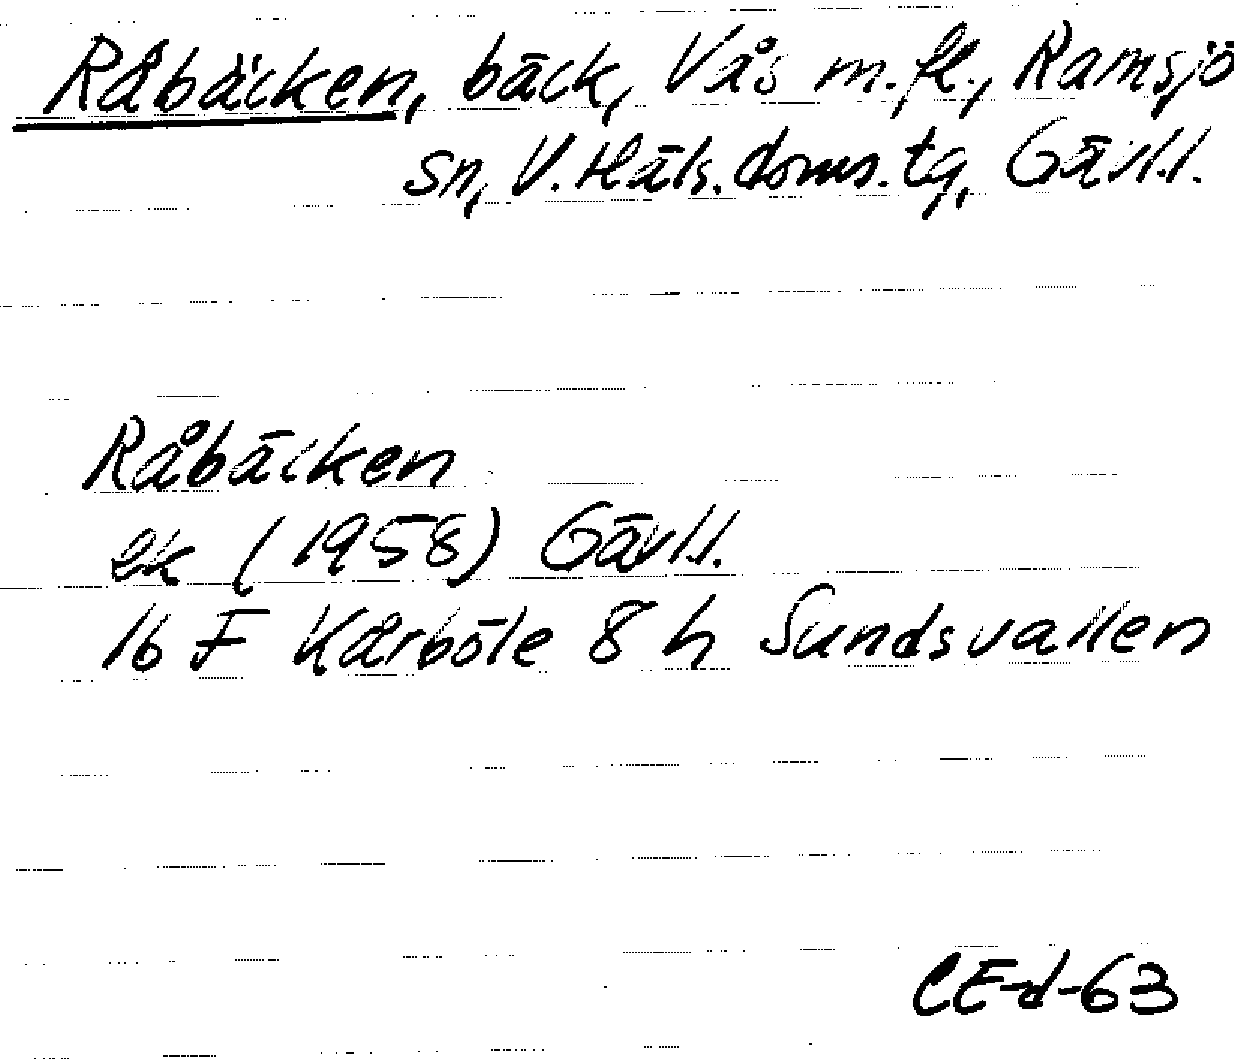 Råbäcken, bäck, Vås m.fl., Ramsjö
sn, V. Häls. doms. tg, Gävl.l.
Råbäcken
ek (1958) Gävl.l.
16 F Kårböle 8 h Sundsvallen
CE-d-63